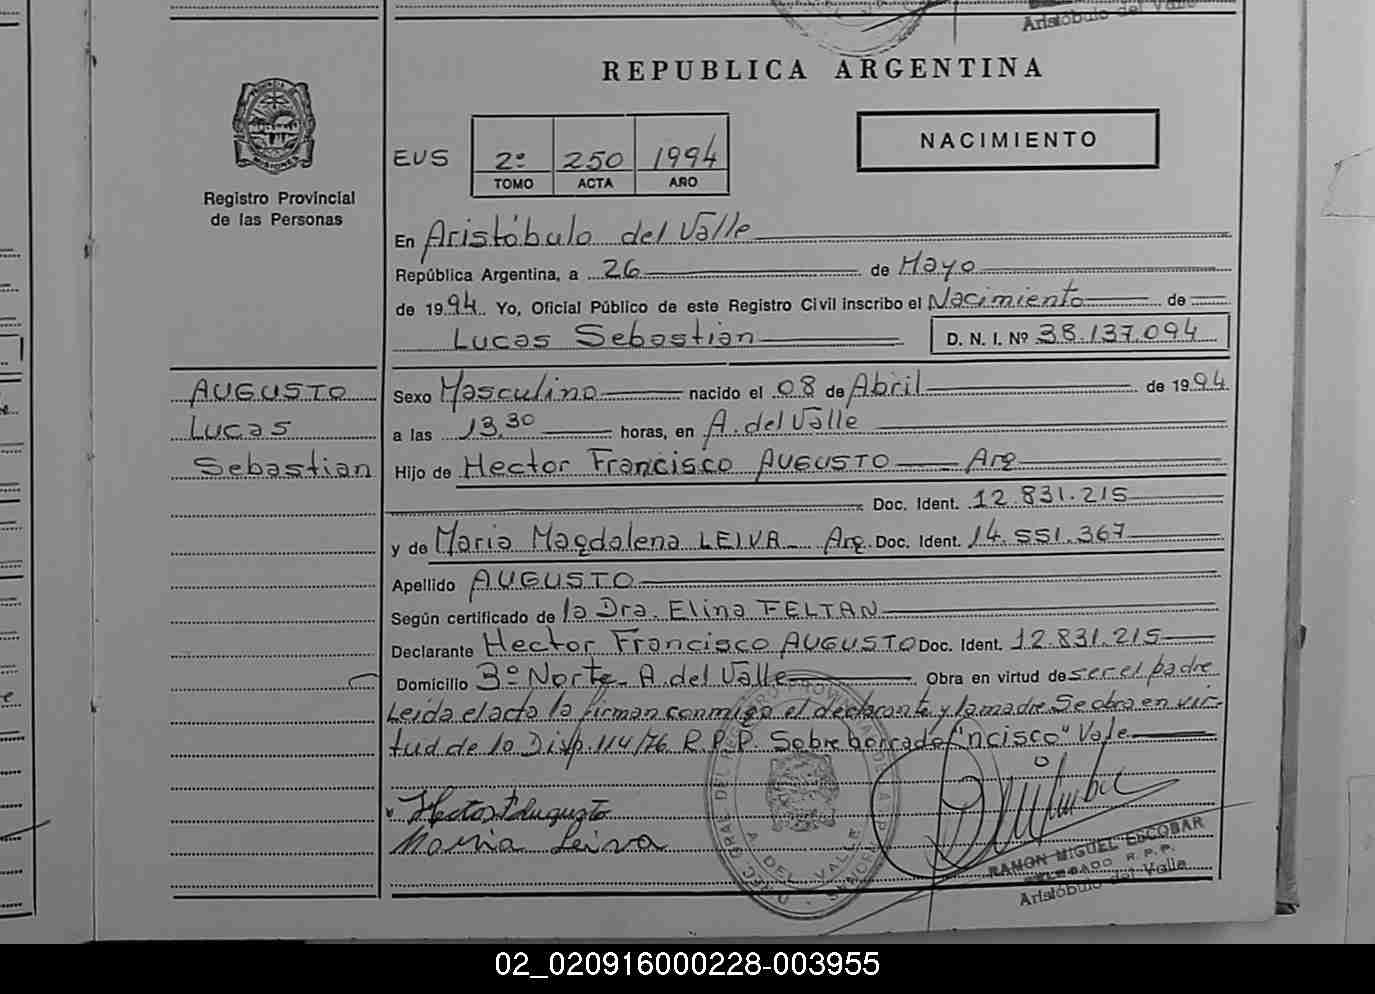 Aristóbulo del Valle
REPUBLICA ARGENTINA
PROVINCIA DE
MISIONES
Registro Provincial
de las Personas
NACIMIENTO
EUS 2º 250 1994
TOMO ACTA AÑO
En Aristóbulo del Valle
República Argentina, a 26 de Mayo
de 1994. Yo, Oficial Público de este Registro Civil inscribo el Nacimiento de
Lucas Sebastian D. N. I. Nº 38.137.094
AUGUSTO
Lucas
Sebastian
Sexo Masculino nacido el 08 de Abril de 1994
a las 13,30 horas, en A. del Valle
Hijo de Hector Francisco AUGUSTO Arg.
Doc. Ident. 12.831.215
y de Maria Magdalena LEIVA Arg. Doc. Ident. 14.551.367
Apellido AUGUSTO
Según certificado de la Dra. Elina FELTAN
Declarante Hector Francisco AUGUSTO Doc. Ident. 12.831.215
Domicilio 3º Norte A. del Valle Obra en virtud de ser el padre
Leida el acta la firman conmigo el declarante y la madre. Se obra en vir-
tud de lo Disp. 114/76 R.P.P. Sobre borrado "ncisco" Vale
Hector F Augusto
Maria Leiva
A. DEL VALLE
RAMON MIGUEL ESCOBAR
DELEGADO R.P.P.
Aristóbulo del Valle
02_020916000228-003955